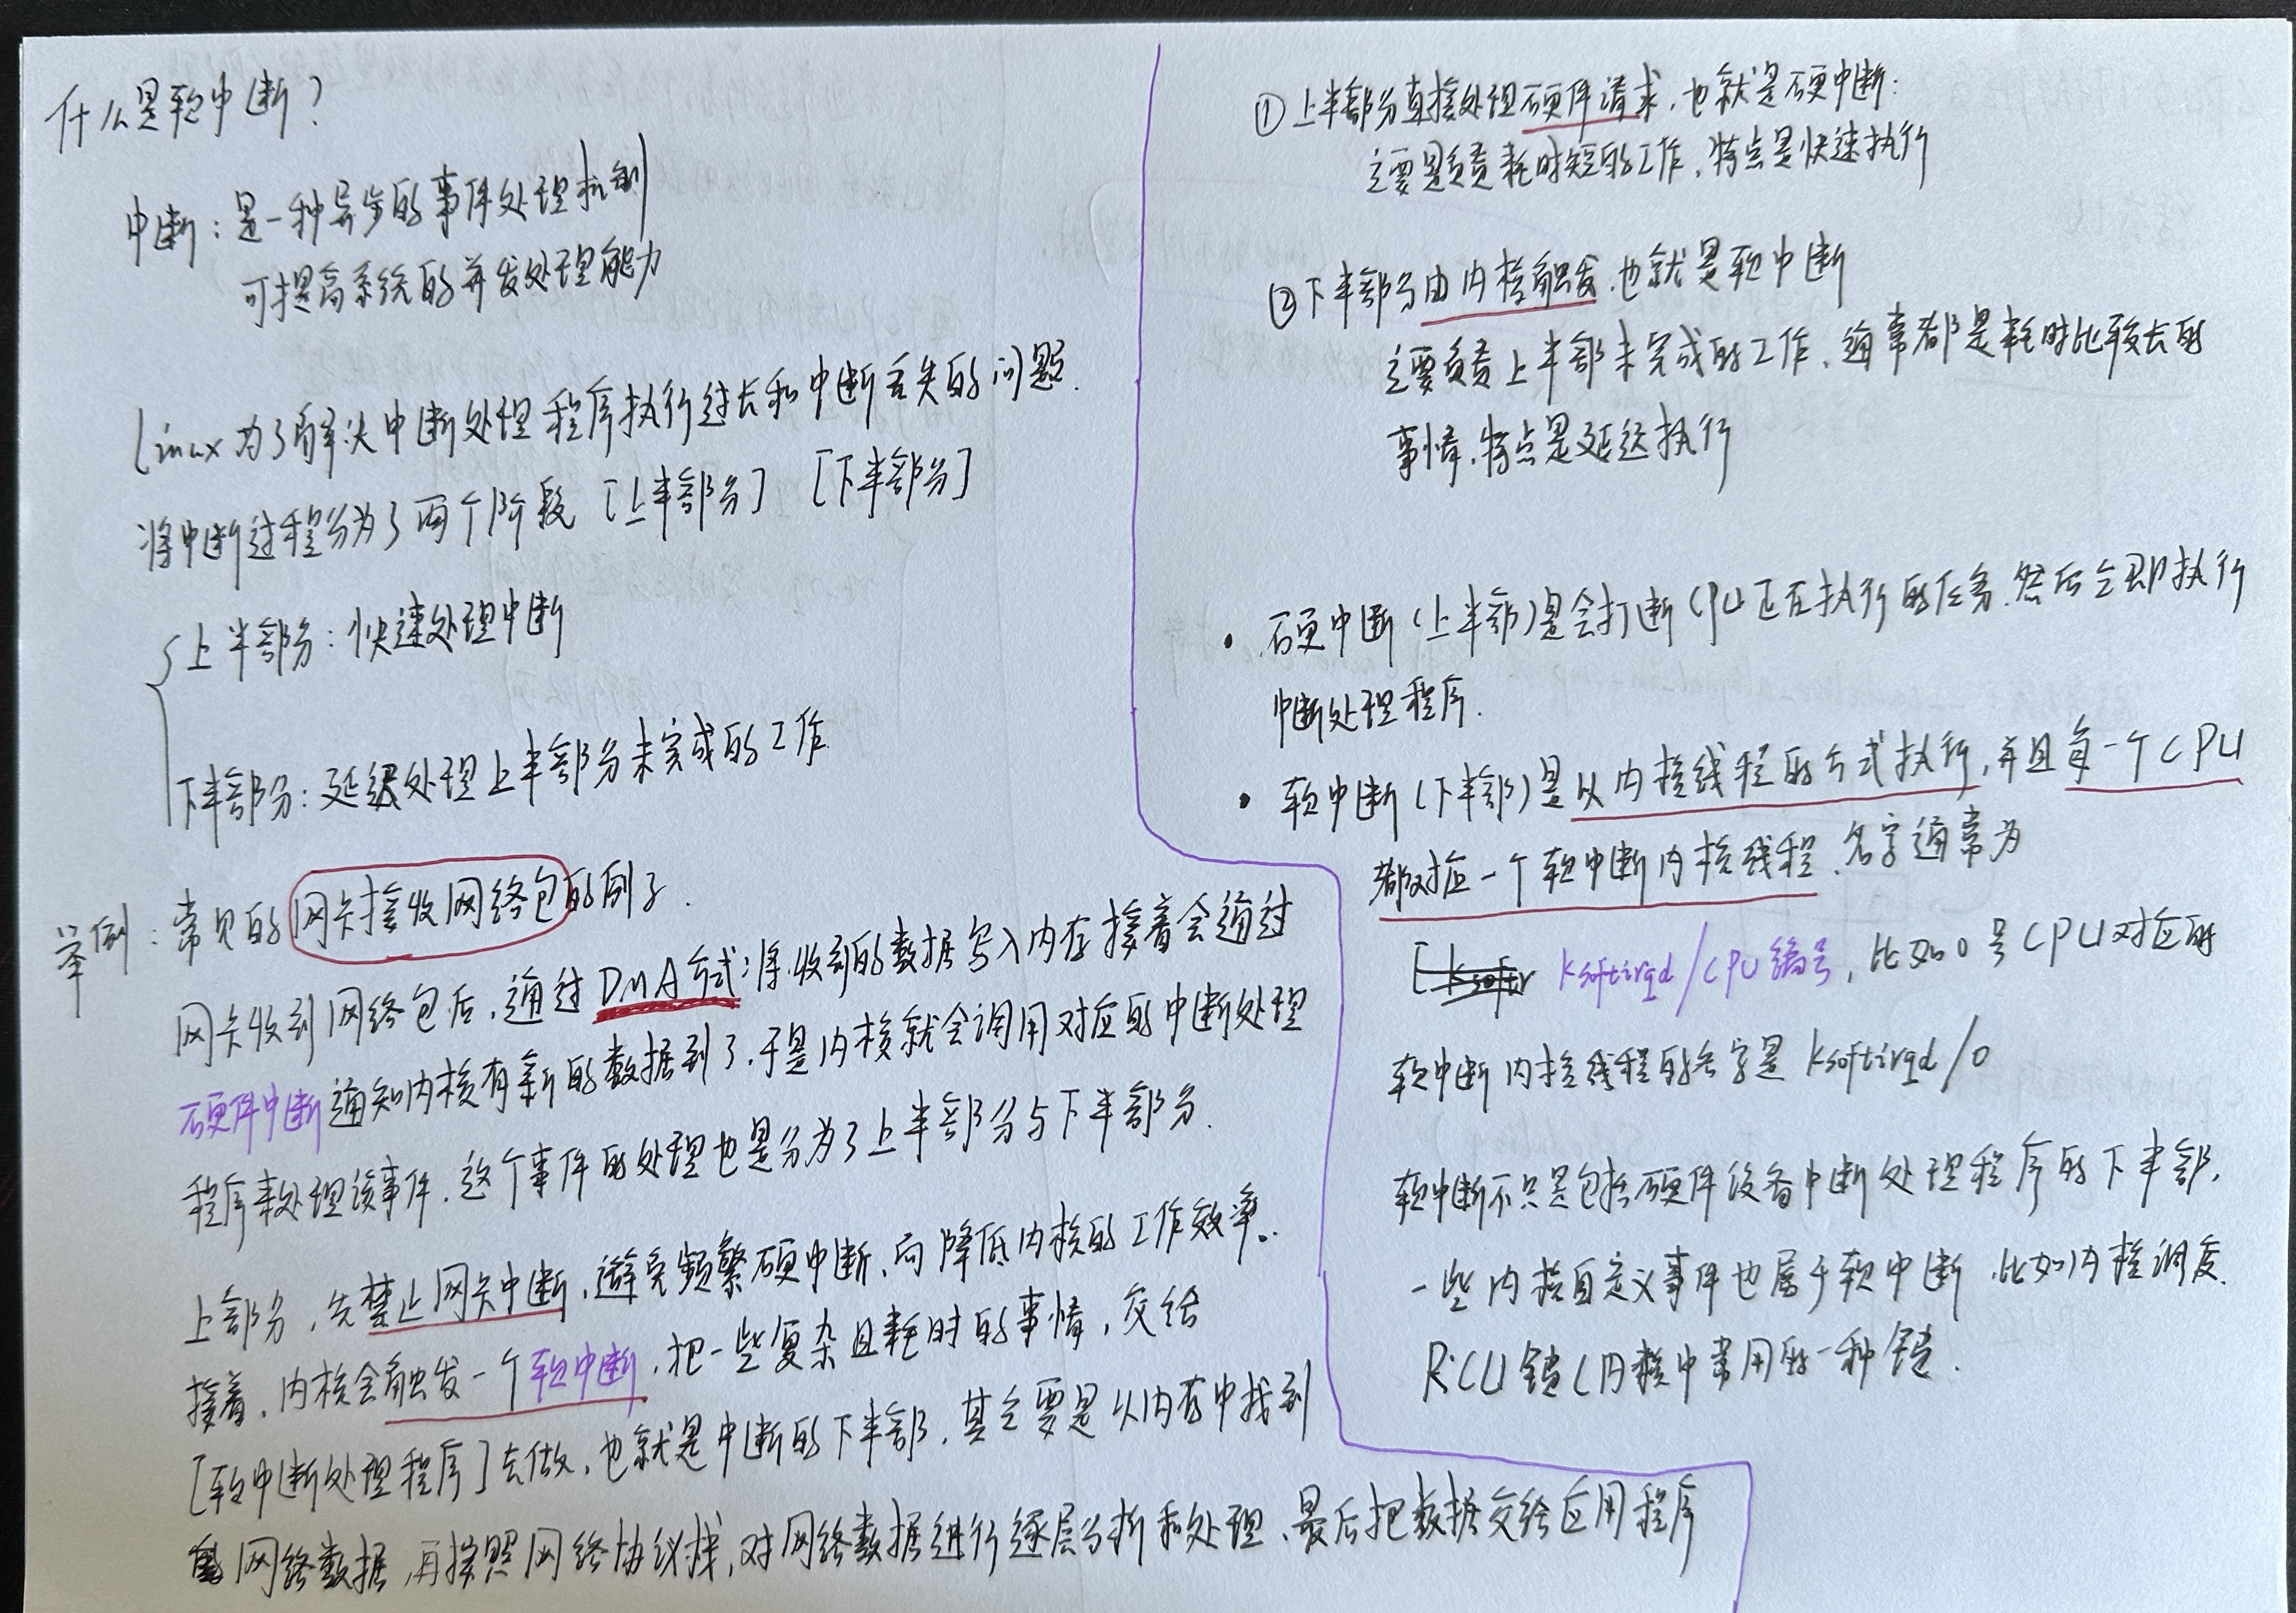 什么是软中断？
中断：是一种异步的事件处理机制
可提高系统的并发处理能力
Linux为了解决中断处理程序执行过长和中断丢失的问题.
将中断过程分为了两个阶段 [上半部分] [下半部分]
上半部分：快速处理中断
下半部分：延迟处理上半部分未完成的工作.
举例：常见的网卡接收网络包的例子.
网卡收到网络包后，通过DMA方式；将收到的数据写入内存接着会通过
硬件中断通知内核有新的数据到了，于是内核就会调用对应的中断处理
程序来处理该事件，这个事件的处理也是分为了上半部分与下半部分.
上部分，先禁止网卡中断，避免频繁硬中断，而降低内核的工作效率.
接着，内核会触发一个软中断，把一些复杂且耗时的事情，交给
[软中断处理程序]去做，也就是中断的下半部，其主要是从内存中找到
网络数据，再按照网络协议栈，对网络数据进行逐层分析和处理、最后把数据交给应用程序
①上半部分直接处理硬件请求，也就是硬中断：
主要是负责耗时短的工作，特点是快速执行
②下半部分由内核触发，也就是软中断
主要负责上半部未完成的工作，通常都是耗时比较长的
事情，特点是延迟执行
• 硬中断（上半部）是会打断CPU正在执行的任务，然后立即执行
中断处理程序.
• 软中断（下半部）是以内核线程的方式执行，并且每一个CPU
都对应一个软中断内核线程，名字通常为
[ksoftir ksoftirqd/CPU编号，比如0号CPU对应的
软中断内核线程的名字是 ksoftirqd/0
软中断不只是包括硬件设备中断处理程序的下半部，
一些内核自定义事件也属于软中断，比如内核调度
RCU锁（内核中常用的一种锁.